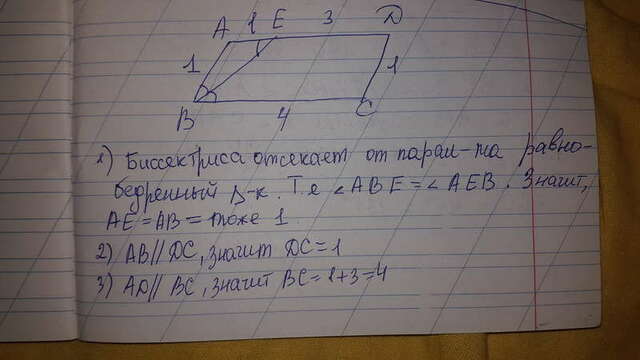 A 1 E 3 D
1 1
B 4 C
1) Биссектриса отсекает от парал-ма равно-
бедренный Δ-к. Т.е ∠ABE=∠AEB. Значит,
AE=AB=тоже 1.
2) AB//DC, значит DC=1
3) AD//BC, значит BC=1+3=4